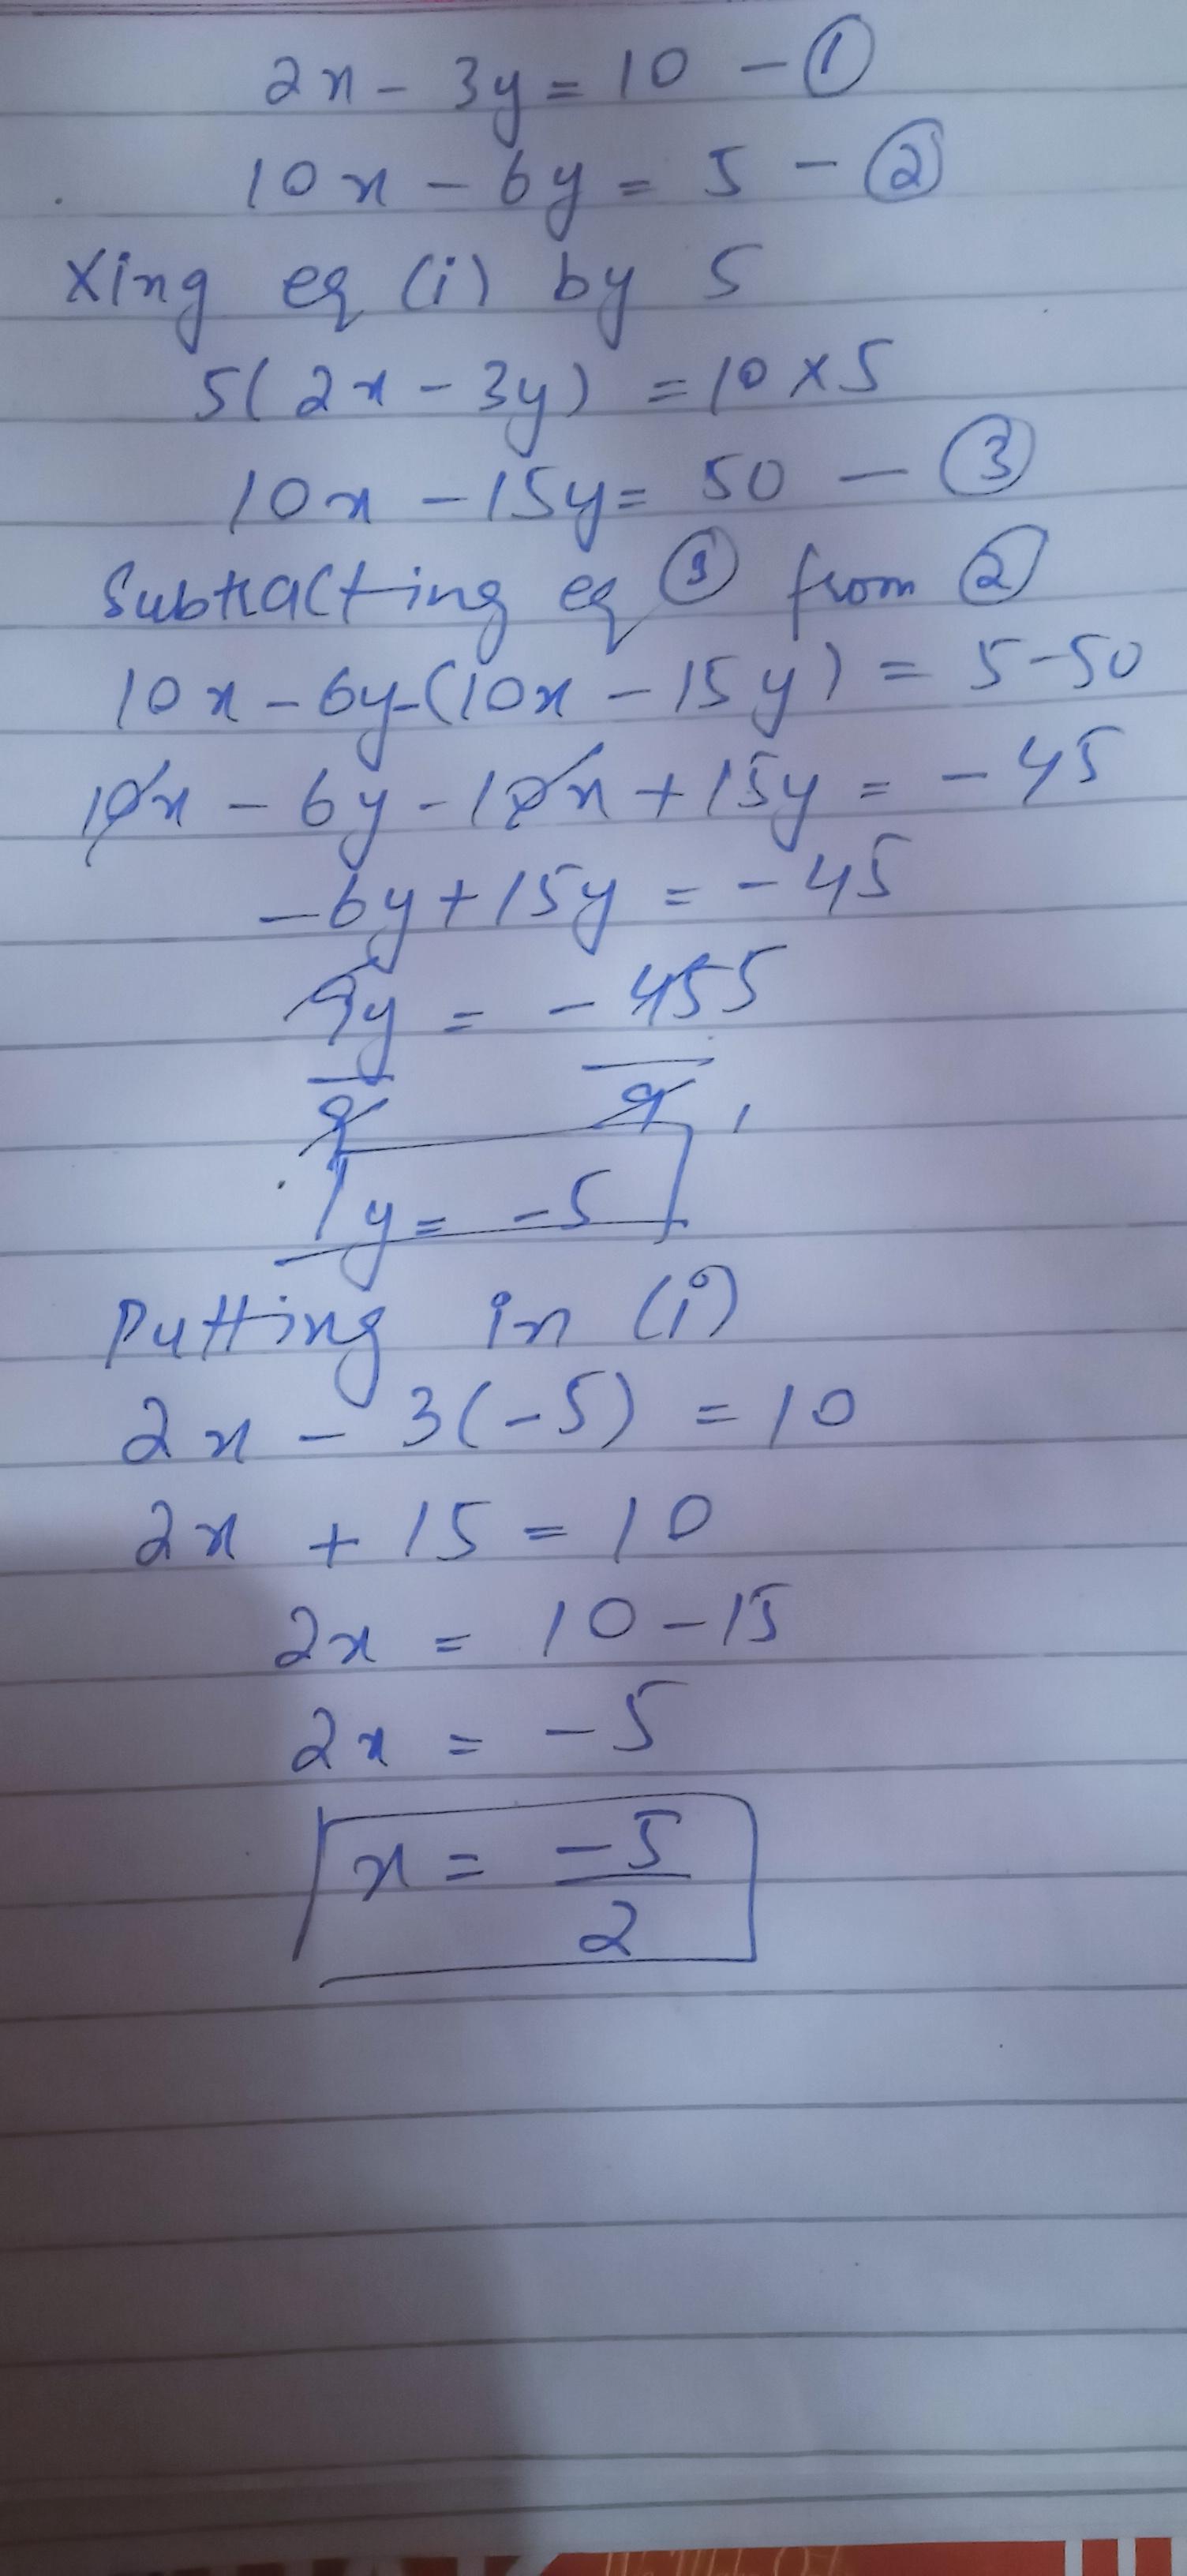 2x - 3y = 10 - ①
10x - 6y = 5 - ②
Xing eq (i) by 5
5(2x - 3y) = 10 x 5
10x - 15y = 50 - ③
Subtracting eq ③ from ②
10x - 6y - (10x - 15y) = 5 - 50
10x - 6y - 10x + 15y = - 45
- 6y + 15y = - 45
9y = - 45 5
9 9 1
y = - 5
Putting in (i)
2x - 3(-5) = 10
2x + 15 = 10
2x = 10 - 15
2x = - 5
x = - 5
2